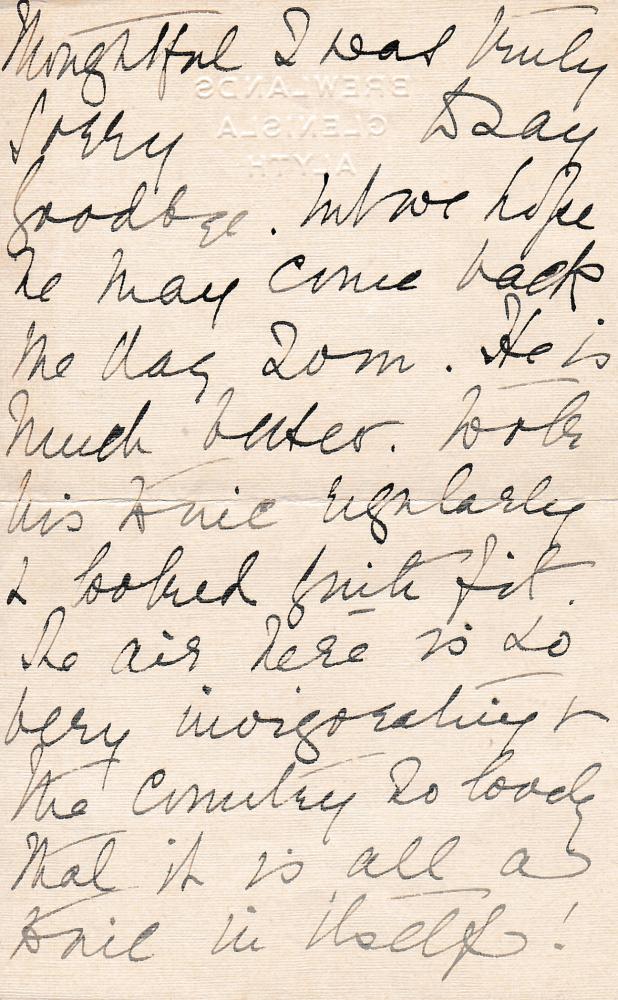 thoughtful I was truly
BREWLANDS
GLENISLA
ALYTH
sorry to say
goodbye. but we hope
he may come back
one day soon. He is
much better. took
his tonic regularly
& looked quite fit.
The air here is so
very invigorating &
the country so lovely
that it is all a
tonic in itself!